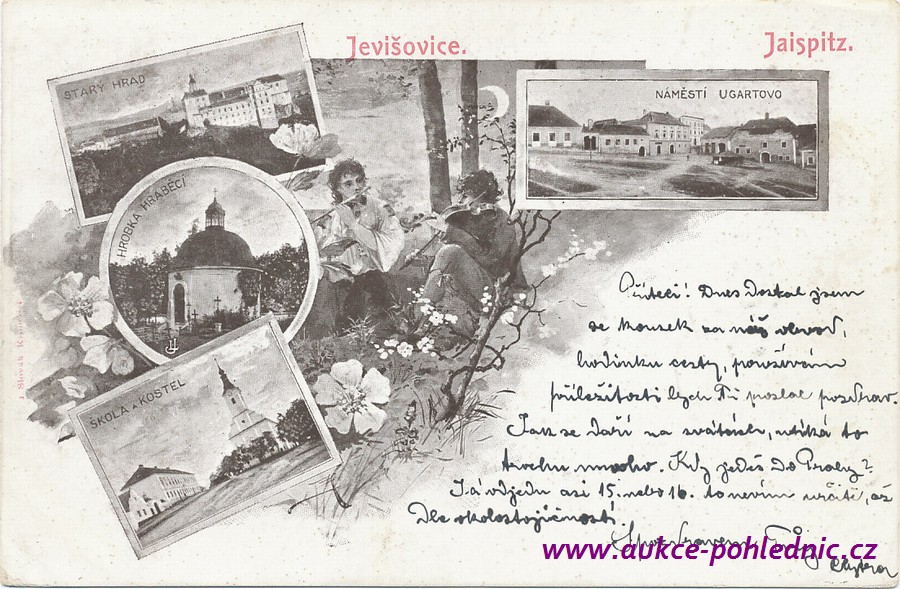 Jevišovice.
Jaispitz.
STARÝ HRAD
NÁMĚSTÍ UGARTOVO
HROBKA HRABĚCÍ
ŠKOLA A KOSTEL
Příteli! Dnes Dostal jsem
se kousek za náš obvod,
hodinku cesty, použávám
příležitosti bych Ti poslal pozdrav.
Jak se daří na svátcích, utíká to
trochu mnoho. Kdy jedeš Do Prahy?
Já odjedu asi 15. nebo 16. to nevím určitě, až
Dle okolostojičností.
S pozdravem Tvůj
www.aukce-pohlednic.cz